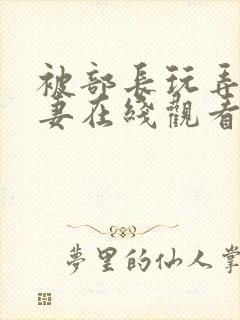 被部長玩弄
妻在綫觀看
夢里的仙人掌